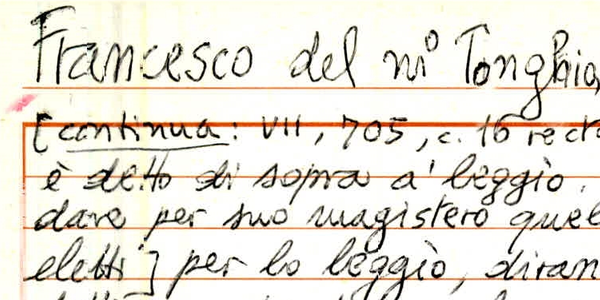 Francesco del m° Tonghio
[continua: VII, 705, c. 16 rect
è detto di sopra a' leggio.
dare per suo magistero quel
eletti] per lo leggio, diran